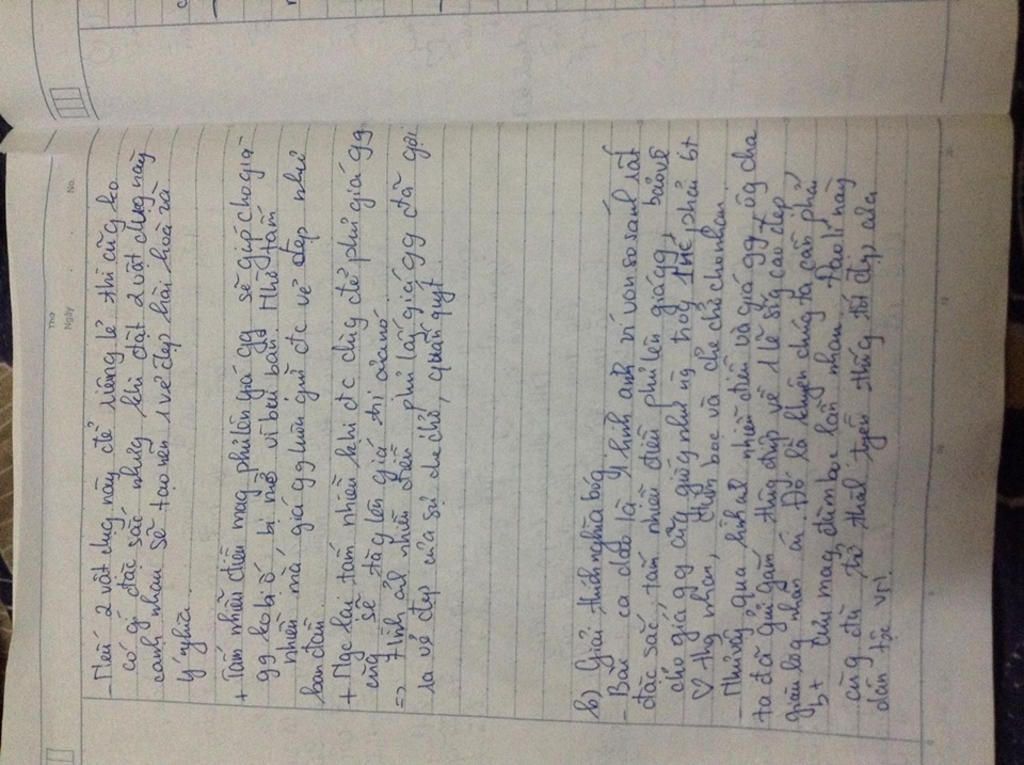 Thứ
Ngày
No.
- Nếu 2 vật dụng này để riêng lẻ thì cũg ko
có gì đặc sắc nhưg khi đặt 2 vật dụng này
cạnh nhau sẽ tạo nên 1 vẻ đẹp hài hoà và
ý nghĩa.
+ Tấm nhiễu điều mag phủ lên giá gg sẽ giúp cho giá
gg ko bị ố, bị mờ vì bụi bẩn. Nhờ tấm
nhiễu mà giá gg luôn giữ đc vẻ đẹp như
ban đầu
+ Ngc lại tấm nhiễu khi đc dùg để phủ giá gg
cũg sẽ tăg lên giá trị của nó
=> Hình ảnh nhiễu điều phủ lấy giá gg đã gợi
ra vẻ đẹp của sự che chở, quấn quýt
b) Giải thích nghĩa bóg
- Bài ca dao là 1 hình ảnh ví von so sánh rất
đặc sắc tấm nhiễu điều phủ lên giá gg, bảo vệ
cho giá gg cũg giốg như ng trog 1 nc phải bt
♡ thg nhau, đùm bọc và che chở cho nhau.
- Như vậy qua hình ảnh nhiễu điều và giá gg ôg cha
ta đã gửi gắm thôg điệp về 1 lẽ sốg cao đẹp
giàu lòg nhân ái. Đó là khuyên chúg ta cần phải
bt cưu mag, đùm bọc lẫn nhau. Đạo lí này
cũg đã trở thành truyền thốg tốt đẹp của
dân tộc VN.